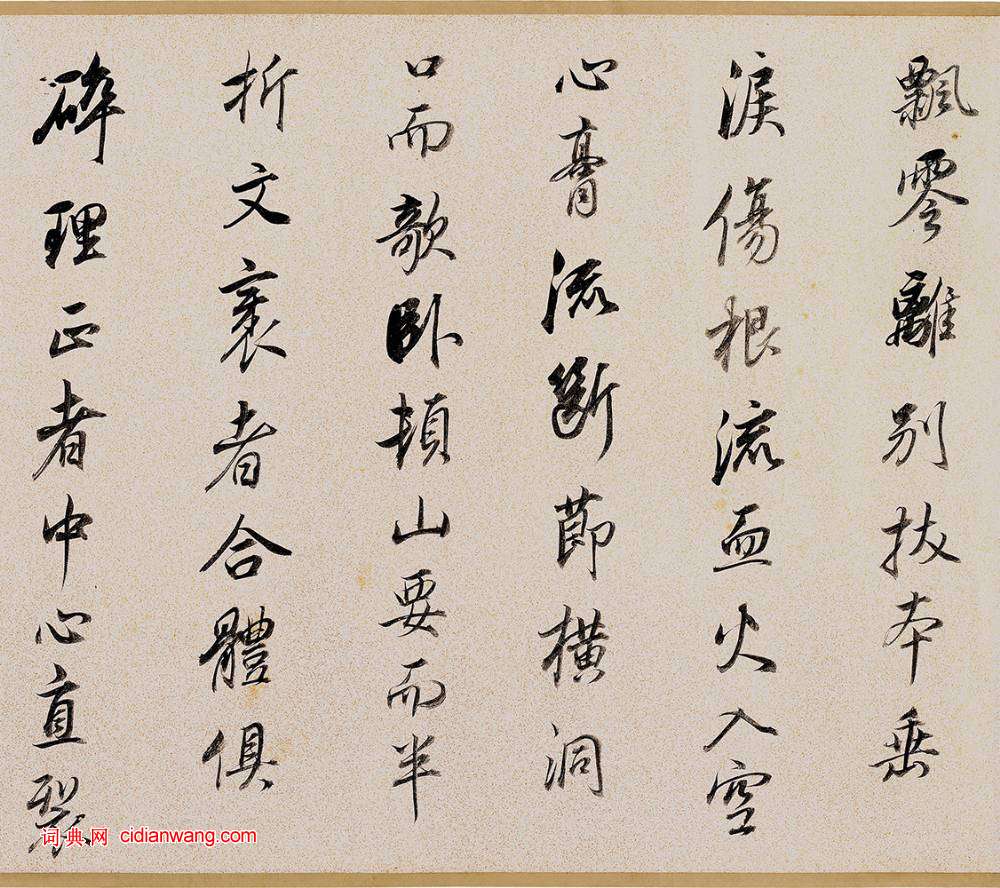 飄零離別拔本垂
淚傷根流血火入空
心膏流斷節橫洞
口而欹臥頓山要而半
折文裹者合體俱
碎理正者中心直裂
词典网 cidianwang.com